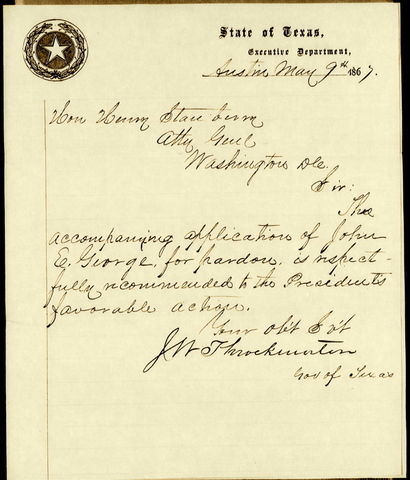 State of Texas,
Executive Department,
Austin May 9th 1867.
Hon Henry Stanberry
Atty Genl
Washington DC
Sir:
The
accompanying application of John
E. George, for pardon, is respect-
fully recommended to the President's
favorable action.
Your obt Svt
J W Throckmorton
Gov of Texas